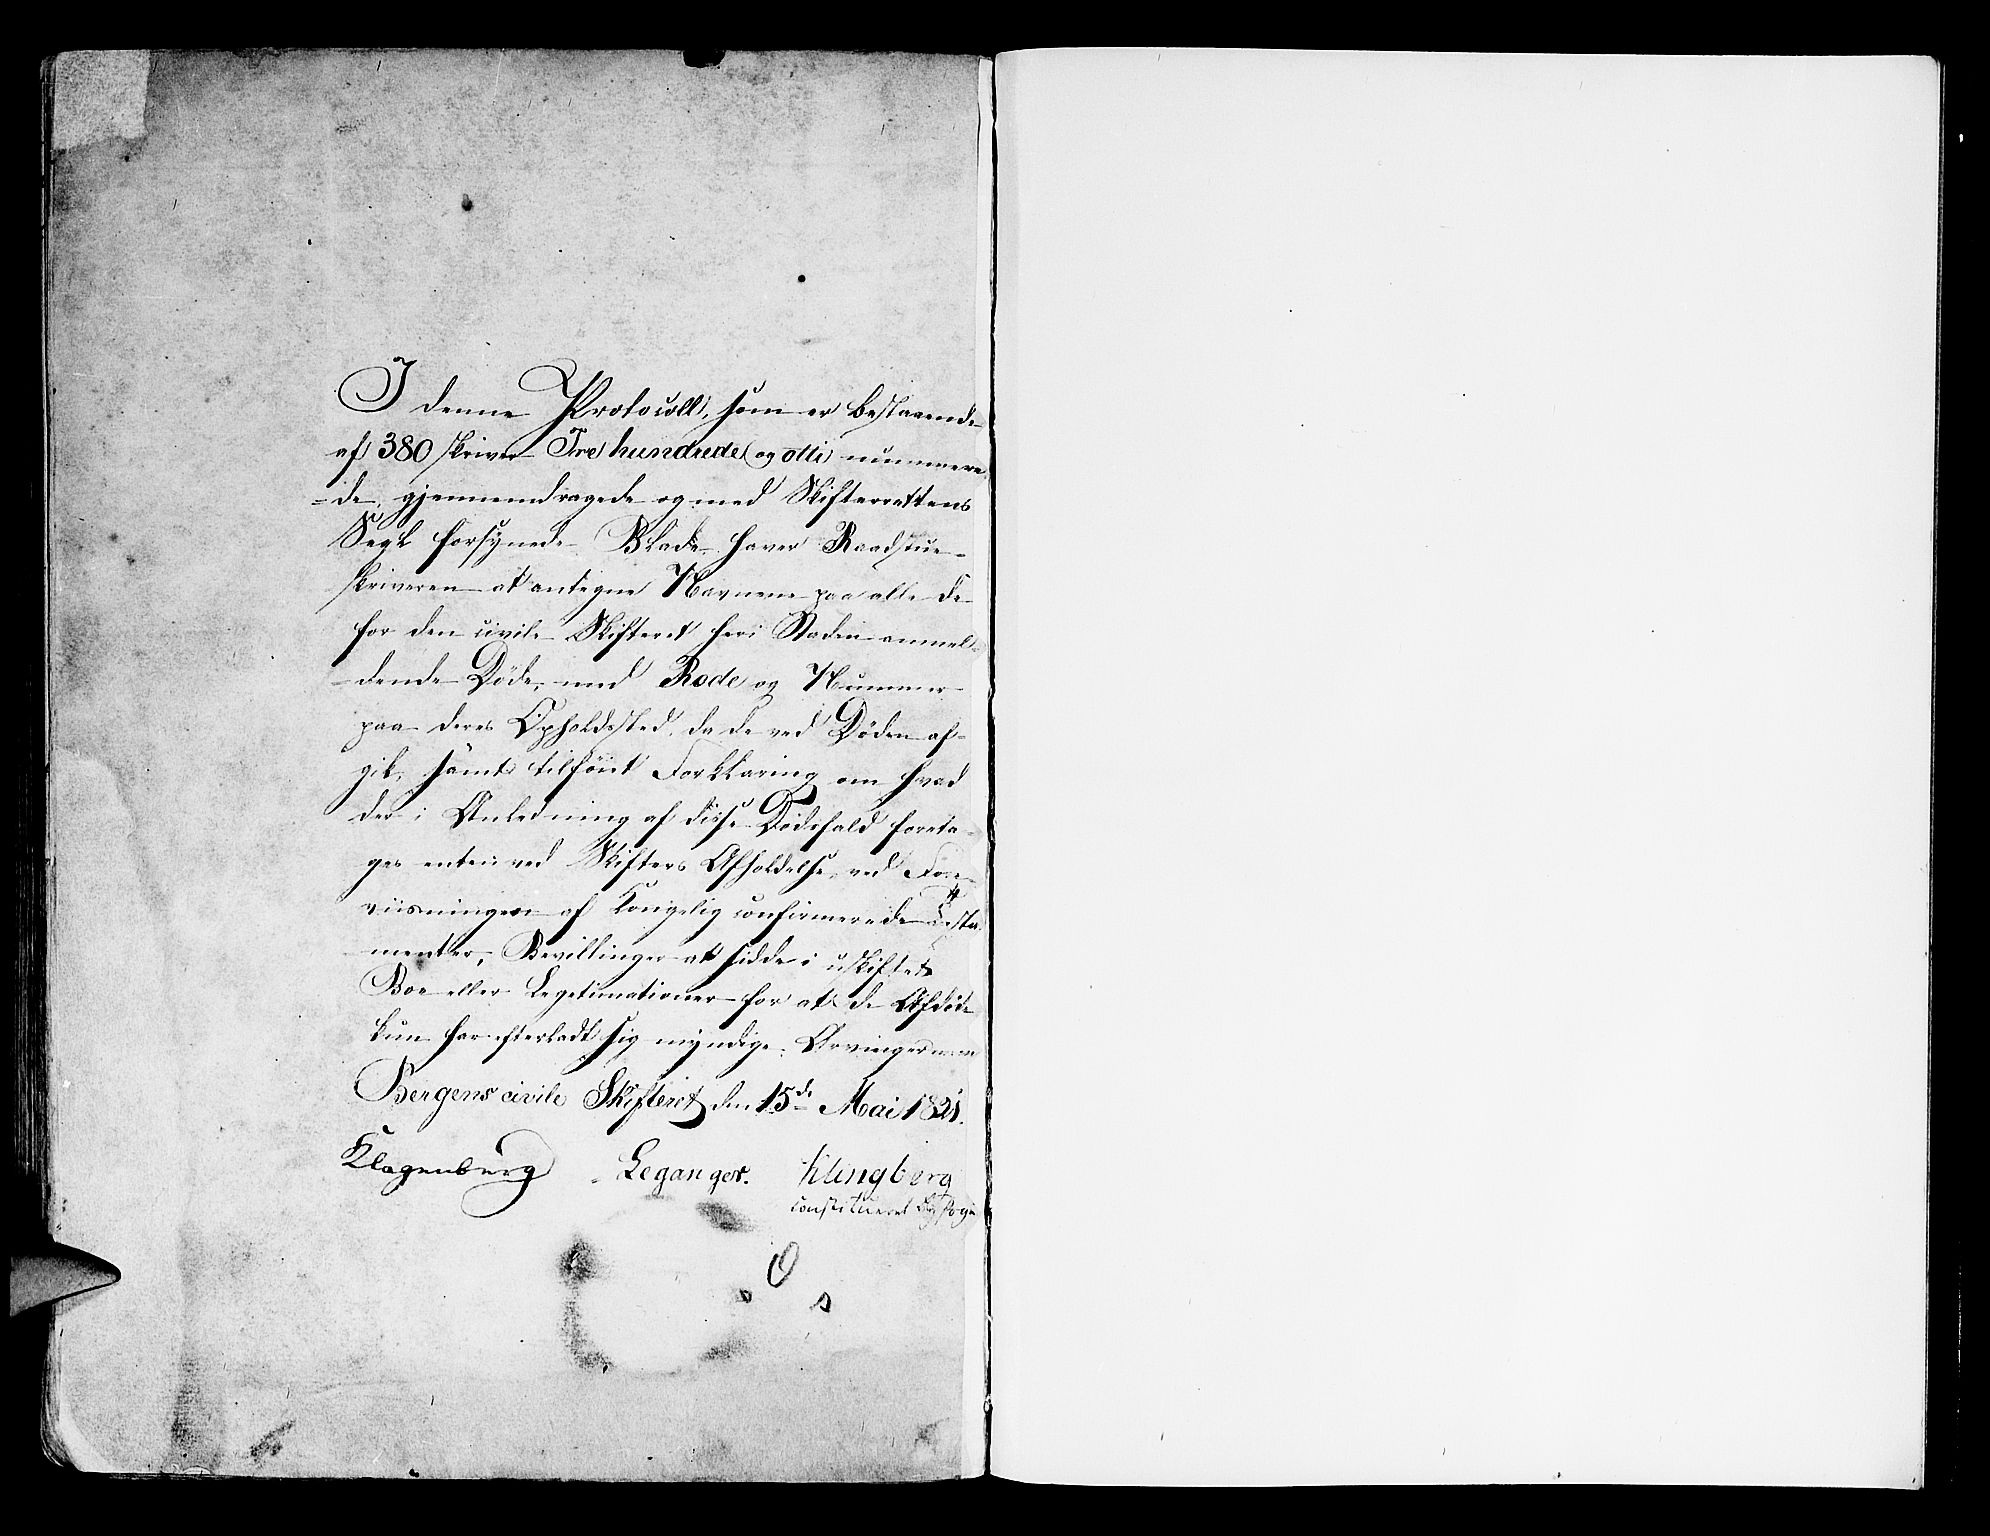 I denne Protocoll, som er bestaaende
af 380 skriver Tre hundrede og otti nummere-
-de, gjennemdragede og med Skifterrettens
Segl forsynede Blade haver Raadstue-
skriveren at antegne Navnene paa alle de
for den civile Skifteret heri Staden anmel-
-dende Døde, med Rode og Nummer
paa deres Opholdssted, da de ved Døden af-
gik, samt tilføiet Forklaring om hvad
der i Anledning af disse Dødsfald foreta-
ges enten ved Skifters Afholdelse, ved Fore-
viisningen af Kongelig confirmerede Testa-
menter, Bevillinger at sidde i uskiftet
Boe eller Legetimationer for at de Afdøde
kun har efterladt sig myndige Arvinger
Bergens civile Skifteret den 15de Mai 1821.
Klagenberg Leganger. Klingberg
constitueret Byfoged